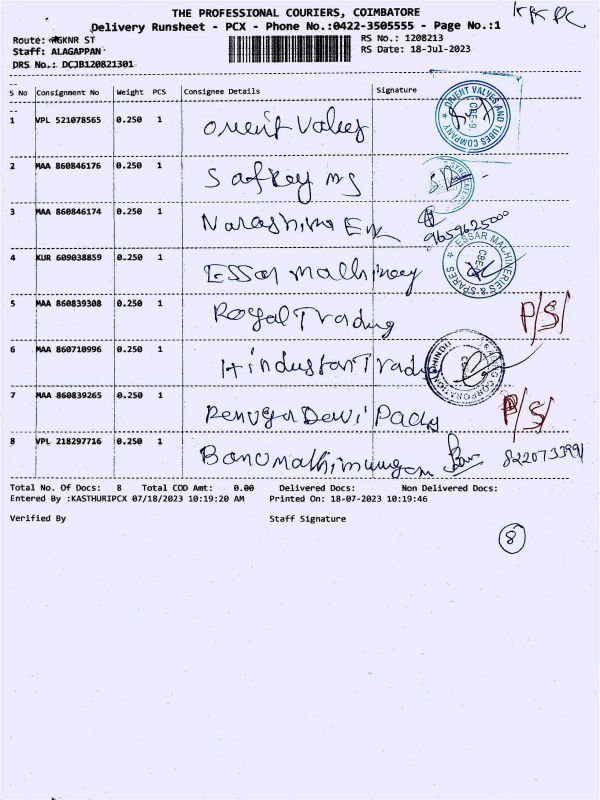 THE PROFESSIONAL COURIERS, COIMBATORE
KK PC
Delivery Runsheet - PCX - Phone No.:0422-3505555 - Page No.:1
Route: RGKNR ST
RS No.: 1208213
Staff: ALAGAPPAN
RS Date: 18-Jul-2023
DRS No.: DCJB120821301
S No Consignment No Weight PCS Consignee Details Signature
1 VPL 521078565 0.250 1 Orient Valves
ORIENT VALVES AND TUBES COMPANY ★ CBE-9
2 MAA 860846176 0.250 1
3 MAA 860846174 0.250 1 Narashima
9659625000
4 KUR 609038859 0.250 1 Essar Mathinery
ESSAR MACHINERIES & SPARES ★ CBE
5 MAA 860839308 0.250 1 Royal Trading P/S/
6 MAA 860710996 0.250 1 Hindustan Trading
CORPORATION
7 MAA 860839265 0.250 1 Renuga Devi P/S/
8 VPL 218297716 0.250 1 Banumathimurugan
Total No. Of Docs: 8 Total COD Amt: 0.00 Delivered Docs: Non Delivered Docs:
Entered By :KASTHURIPCX 07/18/2023 10:19:20 AM Printed On: 18-07-2023 10:19:46
Verified By Staff Signature
8